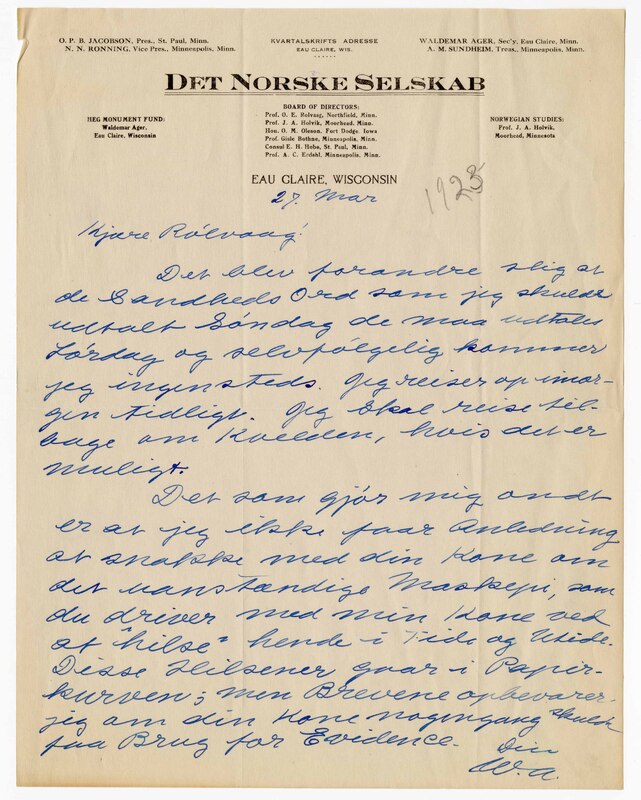 O. P. B. JACOBSON, Pres., St. Paul, Minn.
N. N. RONNING, Vice Pres., Minneapolis, Minn.
KVARTALSKRIFTS ADRESSE
EAU CLAIRE, WIS.
WALDEMAR AGER, Sec'y, Eau Claire, Minn.
A. M. SUNDHEIM, Treas., Minneapolis, Minn.
DET NORSKE SELSKAB
HEG MONUMENT FUND:
Waldemar Ager,
Eau Claire, Wisconsin
BOARD OF DIRECTORS:
Prof. O. E. Rolvaag, Northfield, Minn.
Prof. J. A. Holvik, Moorhead, Minn.
Hon. O. M. Oleson, Fort Dodge, Iowa
Prof. Gisle Bothne, Minneapolis, Minn.
Consul E. H. Hobe, St. Paul, Minn.
Prof. A. C. Erdahl, Minneapolis, Minn.
NORWEGIAN STUDIES:
Prof. J. A. Holvik,
Moorhead, Minnesota
EAU CLAIRE, WISCONSIN
27. Mar
1925
Kjære Rölvaag!
Det blev forandre slig at
de Sandheds Ord som jeg skulde
udtalt Søndag de maa udtales
Lørdag og selvfölgelig kommer
jeg ingensteds. Jeg reiser op imor-
gen tidligt. Jeg skal reise til-
bage om Kvelden, hvis det er
muligt.
Det som gjör mig ondt
er at jeg ikke faar Anledning
at snakke med din Kone om
det uanstændige Maskepi, som
du driver med min Kone ved
at "hilse" hende i Tide og Utide.
Disse Hilsener gaar i Papir-
kurven; men Brevene opbevarer
jeg om din Kone nogengang skulde
faa Brug for Evidence.
Din
W.A.